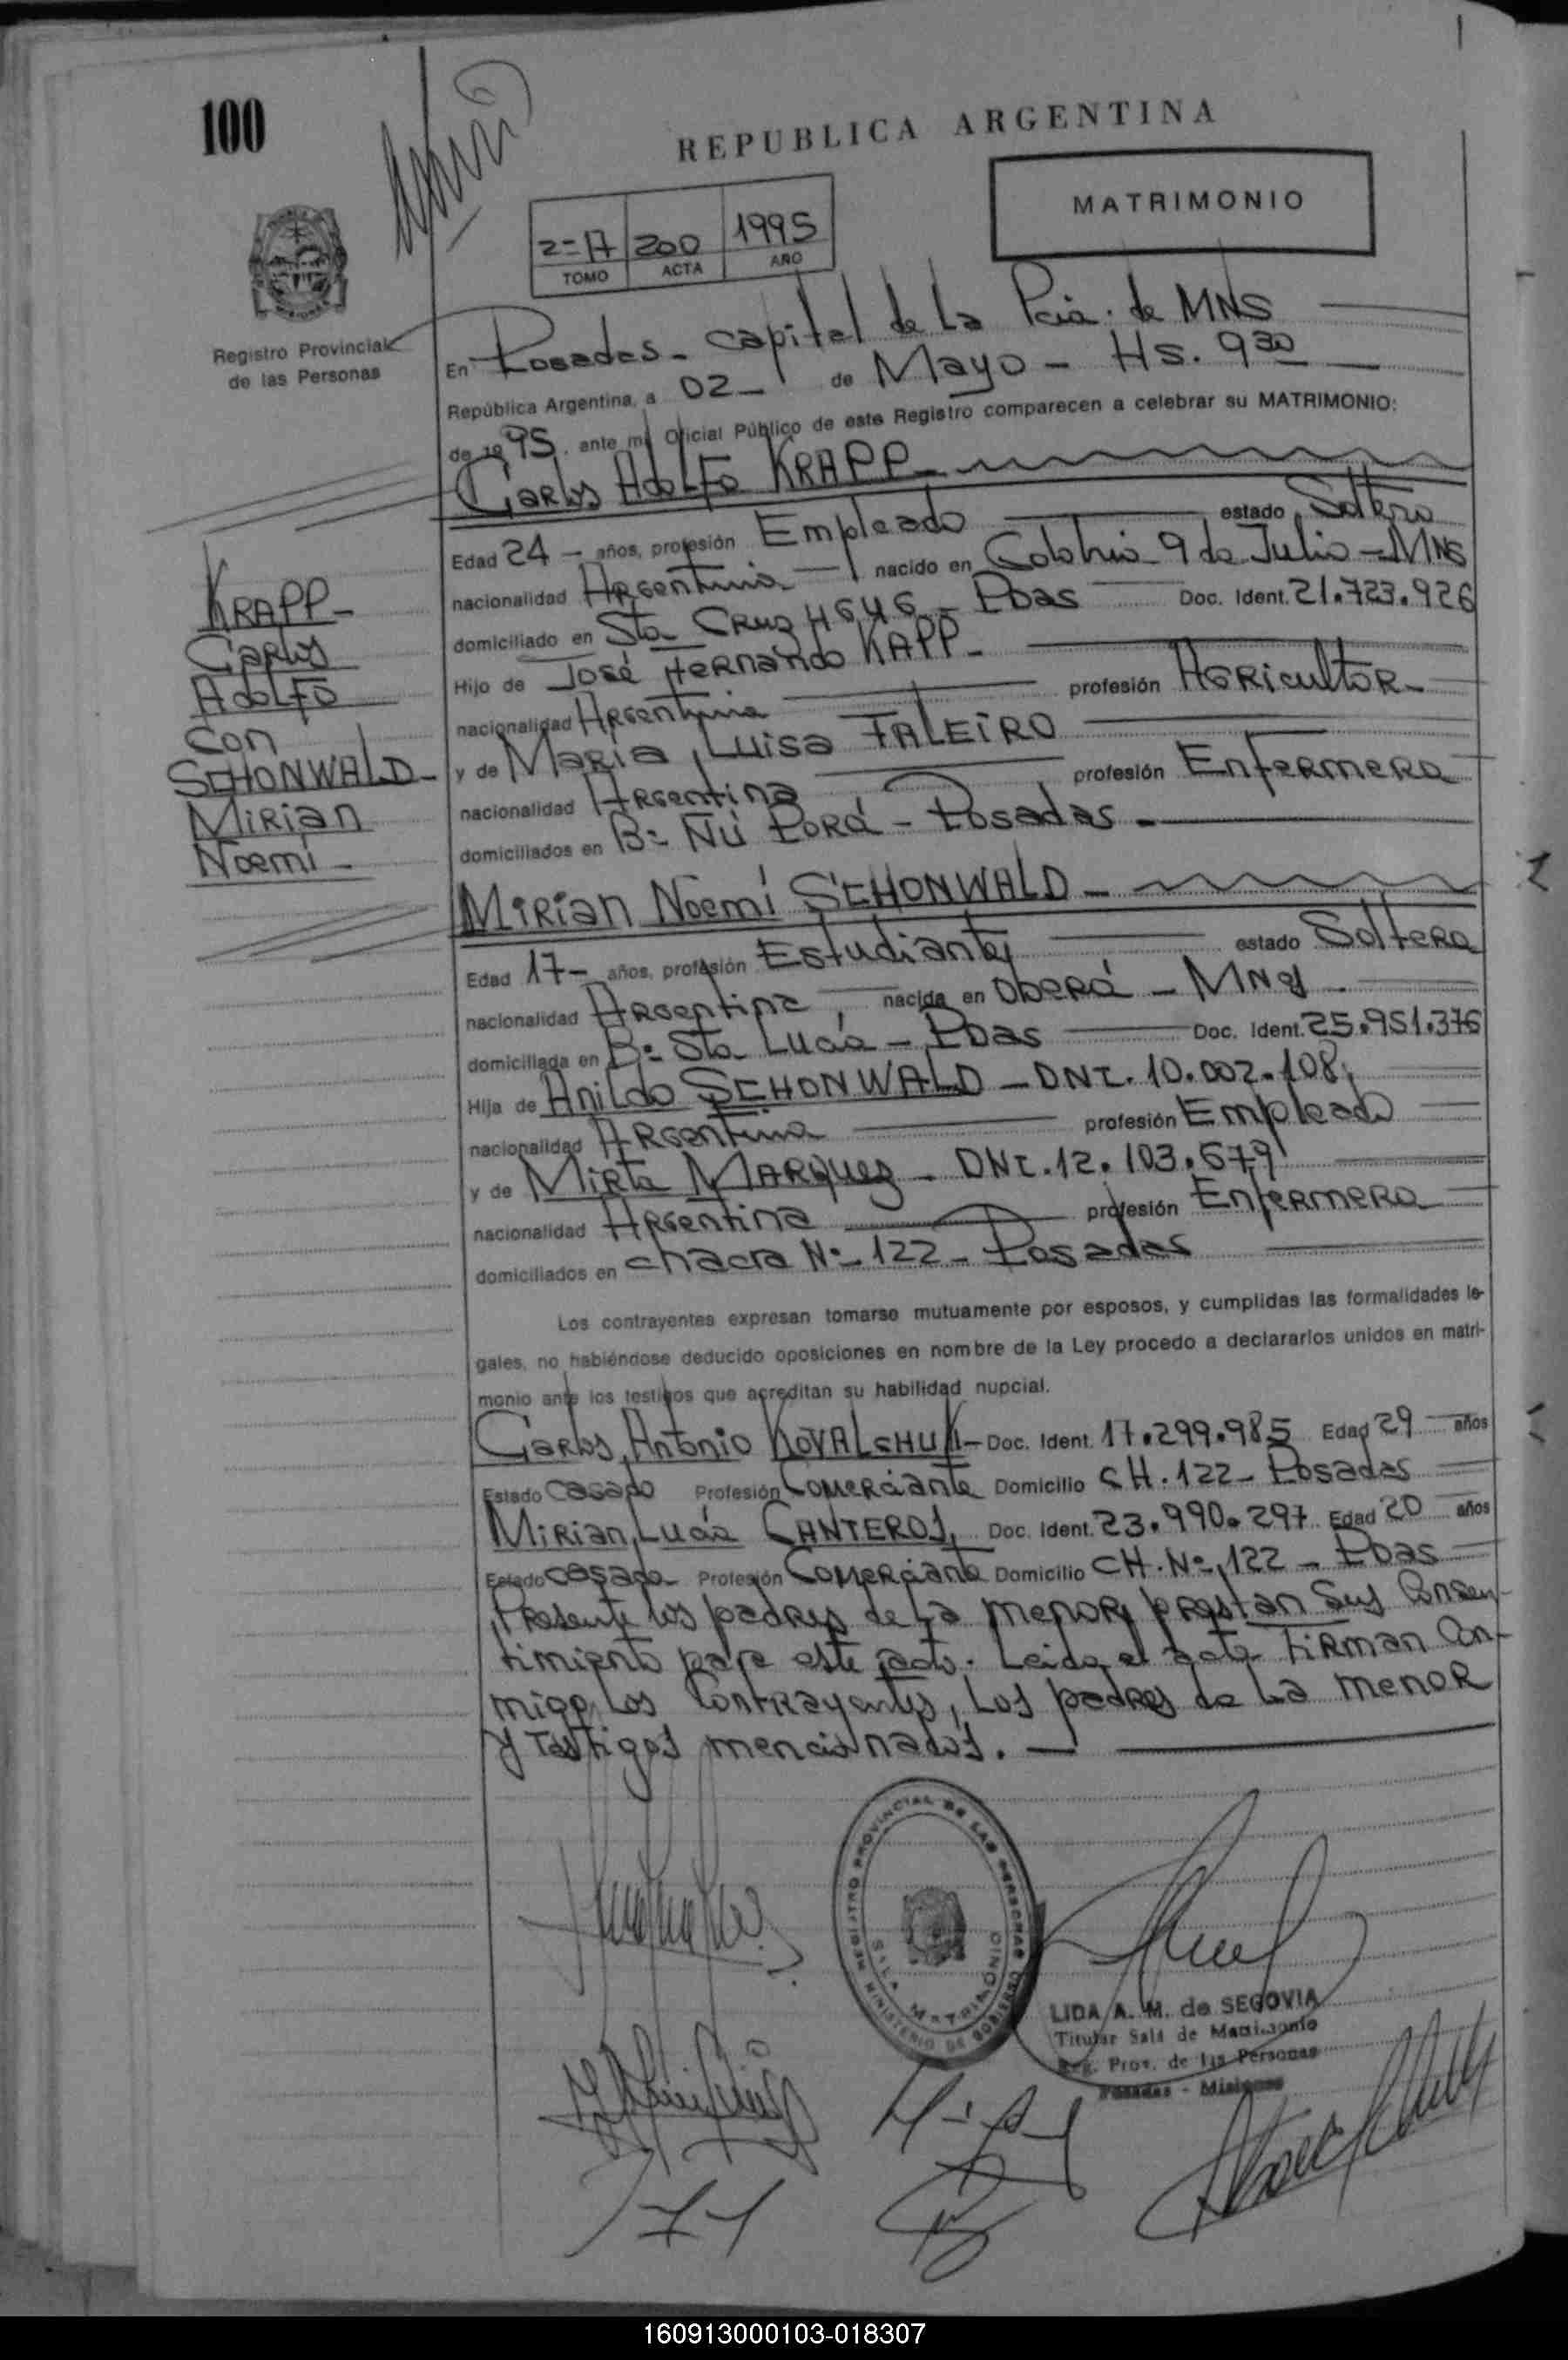 100
REPUBLICA ARGENTINA
MATRIMONIO
2=17 200 1995
TOMO ACTA AÑO
Registro Provincial
de las Personas
En Posadas - capital de La Pcia. de MNS
República Argentina, a 02 - de Mayo - Hs. 9 30
de 19 95. ante mí Oficial Público de este Registro comparecen a celebrar su MATRIMONIO:
Carlos Adolfo KRAPP -
Edad 24 - años, profesión Empleado estado Soltero
nacionalidad Argentina nacido en Colonia 9 de Julio - MNS
domiciliado en Sta Cruz 4646 - Pdas Doc. Ident. 21.723.926
Hijo de José Hernando KAPP -
nacionalidad Argentina profesión Agricultor -
y de Maria Luisa FALEIRO
nacionalidad Argentina profesión Enfermera
domiciliados en B= Ñú Porá - Posadas -
KRAPP -
Carlos
Adolfo
con
SCHONWALD -
Mirian
Noemí -
Mirian Noemí SCHONWALD -
Edad 17 - años, profesión Estudiante estado Soltera
nacionalidad Argentina nacida en Oberá - MNS
domiciliada en B= Sta Lucía - Pdas Doc. Ident. 25.951.376
Hija de Anildo SCHONWALD - DNI. 10.002.108
nacionalidad Argentina profesión Empleado
y de Mirta MARQUEZ - DNI. 12.103.679
nacionalidad Argentina profesión Enfermera
domiciliados en chacra Nº 122 - Posadas
Los contrayentes expresan tomarse mutuamente por esposos, y cumplidas las formalidades le-
gales, no habiéndose deducido oposiciones en nombre de la Ley procedo a declararlos unidos en matri-
monio ante los testigos que acreditan su habilidad nupcial.
Carlos Antonio KOVALCHUK - Doc. Ident. 17.299.985 Edad 29 años
Estado casado Profesión Comerciante Domicilio CH. 122 - Posadas
Mirian Lucía CANTEROS, Doc. Ident. 23.990.297 Edad 20 años
Estado casada - Profesión Comerciante Domicilio CH. Nº 122 - Pdas
Presente los padres de La menor prestan sus Consen-
timiento para este acto. Leida el acta firman Con-
migo, los Contrayentes, los padres de La menor
y testigos mencionados. -
REGISTRO PROVINCIAL DE LAS PERSONAS
MINISTERIO DE GOBIERNO
SALA MATRIMONIO
LIDA A. M. de SEGOVIA
Titular Sala de Matrimonio
Reg. Prov. de las Personas
Posadas - Misiones
160913000103-018307